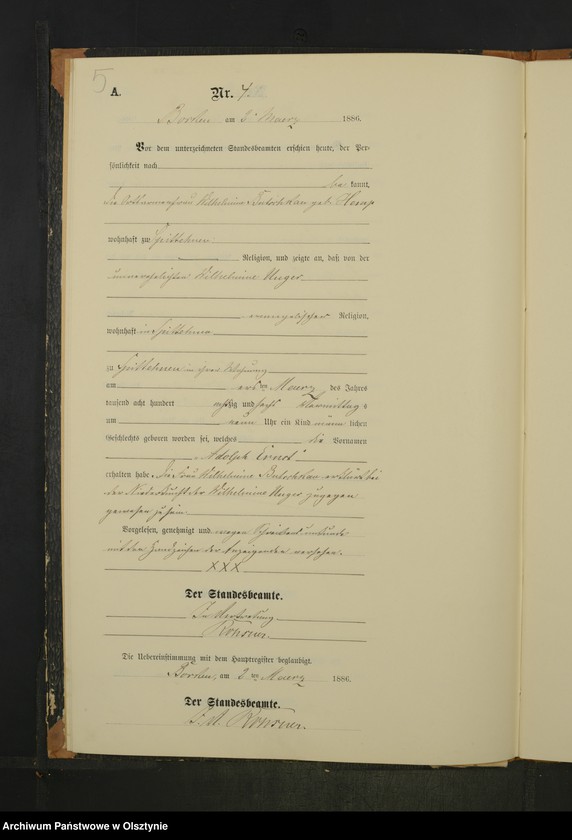 5
A.
Nr. 4
am 2ⁿ Maerz 1886.
Vor dem unterzeichneten Standesbeamten erschien heute, der Per-
sönlichkeit nach
be kannt,
die Wilhelmine geb.
wohnhaft zu
Religion, und zeigte an, daß von der
unverehelichten Wilhelmine Unger
evangelischer Religion,
wohnhaft in
zu in ihrer Wohnung
am ersten Maerz des Jahres
tausend acht hundert achtzig und sechs Vormittags
um neun Uhr ein Kind männlichen
Geschlechts geboren worden sei, welches die Vornamen
Adolph Ernst
erhalten habe. Die Frau Wilhelmine erklärt bei
der Niederkunft der Wilhelmine Unger zugegen
gewesen zu sein.
Vorgelesen, genehmigt und wegen Schreibensunkunde
mit den Handzeichen der Anzeigenden versehen.
XXX
Der Standesbeamte.
In Vertretung
Die Uebereinstimmung mit dem Hauptregister beglaubigt.
am 2ten Maerz 1886.
Der Standesbeamte.
Archiwum Państwowe w Olsztynie